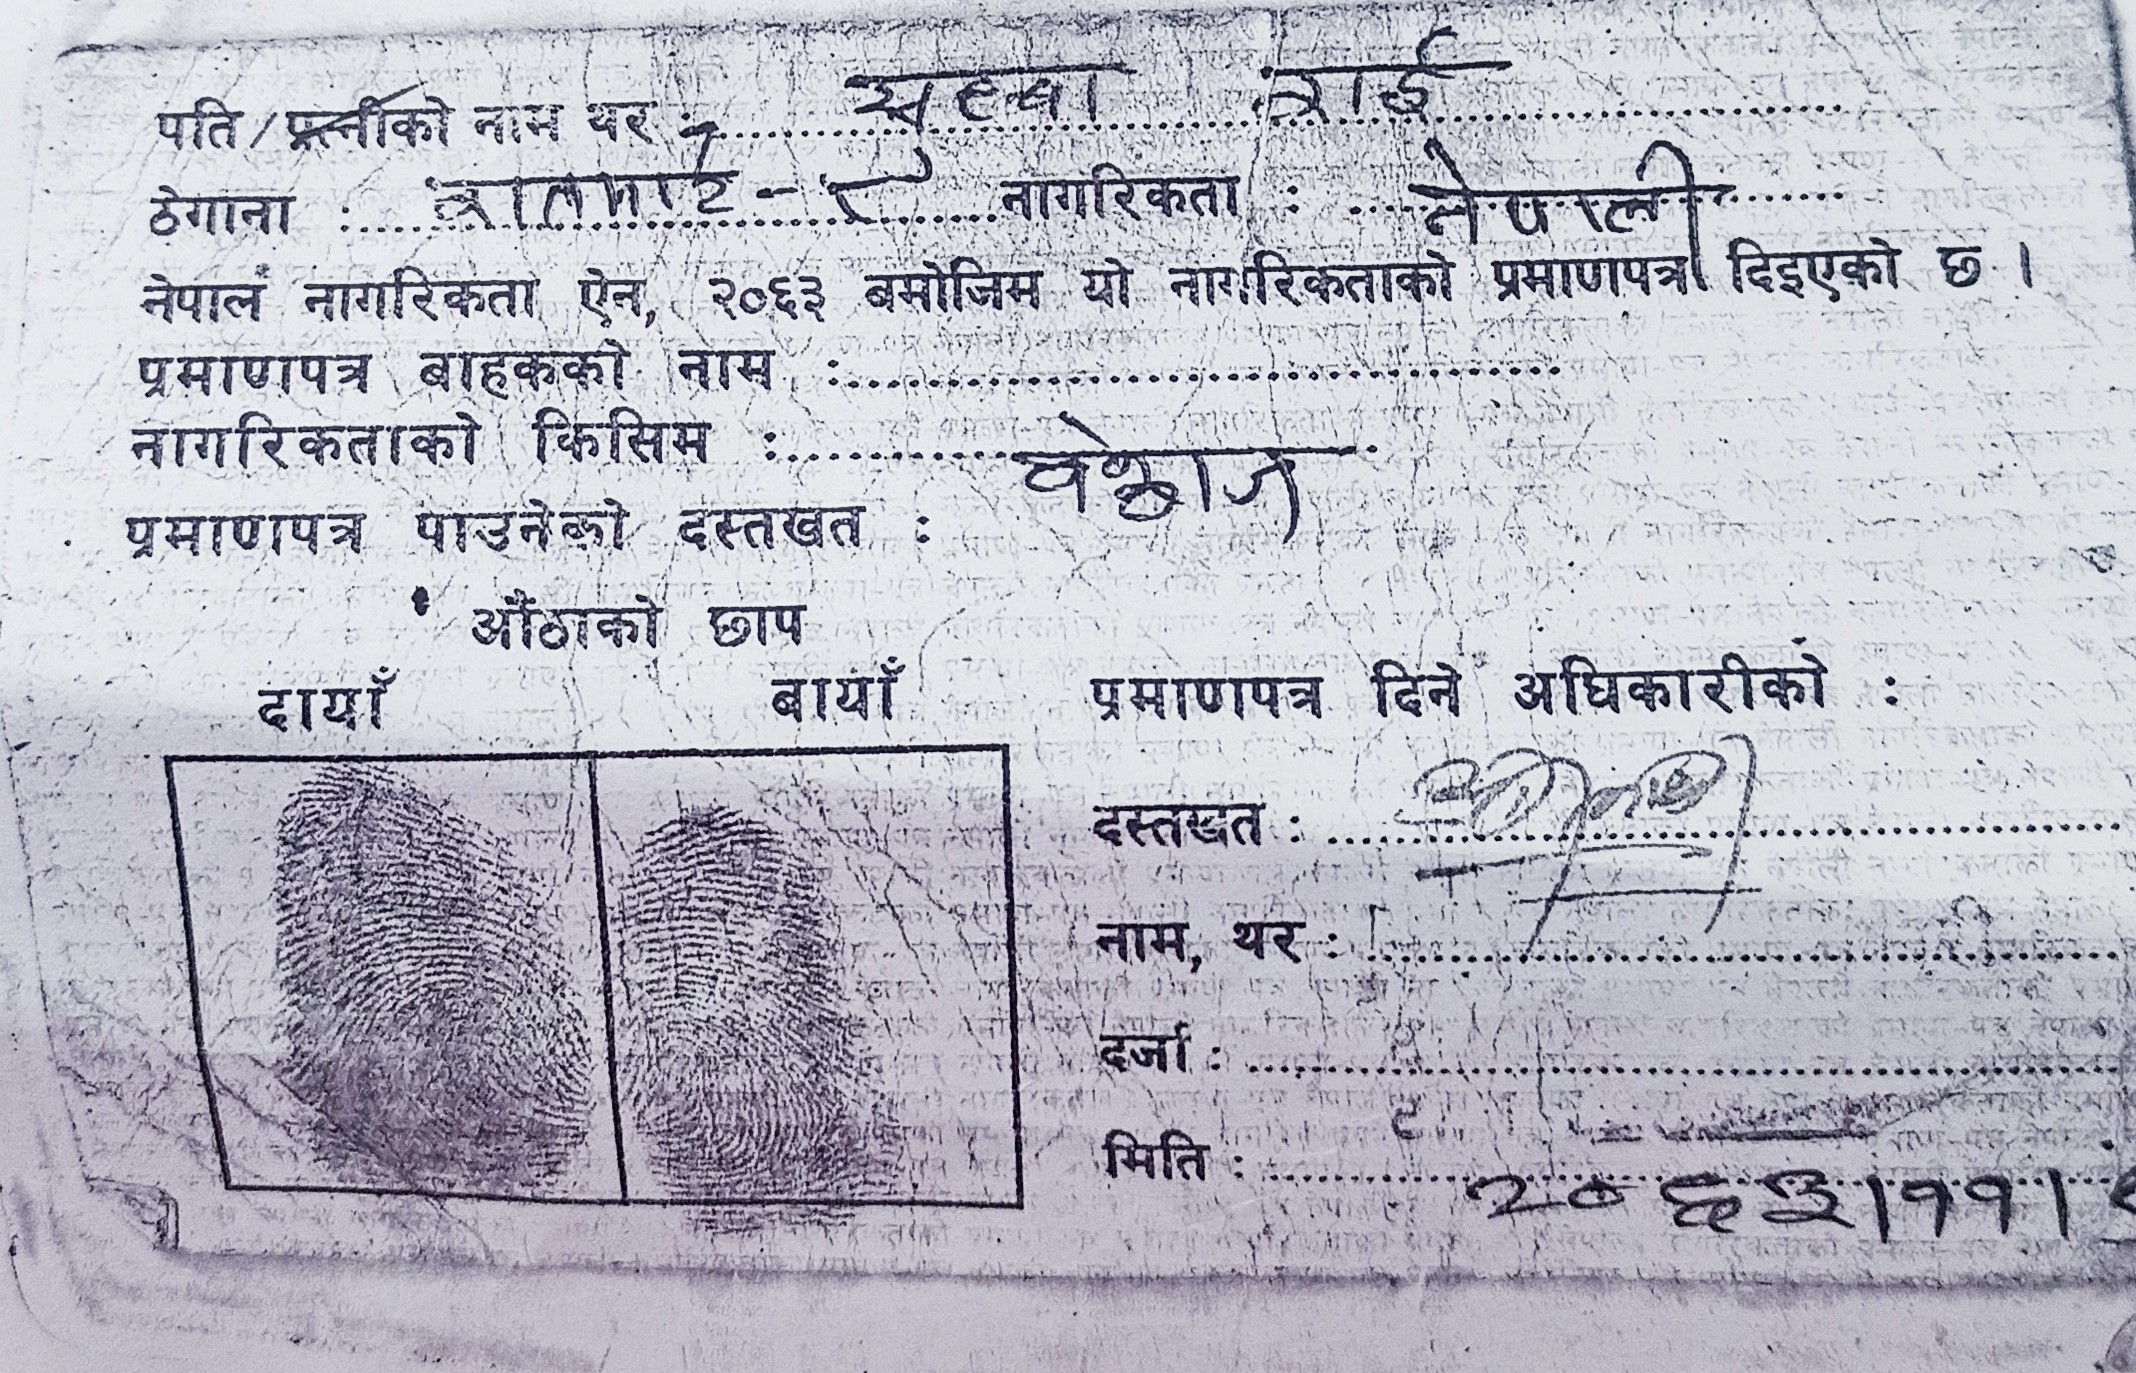 पति/पत्नीको नाम थर : राई
ठेगाना : नागरिकता : नेपाली
नेपाल नागरिकता ऐन, २०६३ बमोजिम यो नागरिकताको प्रमाणपत्र दिइएको छ ।
प्रमाणपत्र बाहकको नाम :
नागरिकताको किसिम : वंशज
प्रमाणपत्र पाउनेको दस्तखत :
औंठाको छाप
दायाँ बायाँ प्रमाणपत्र दिने अधिकारीको :
दस्तखत :
नाम, थर :
दर्जा :
मिति : २०६३।११।